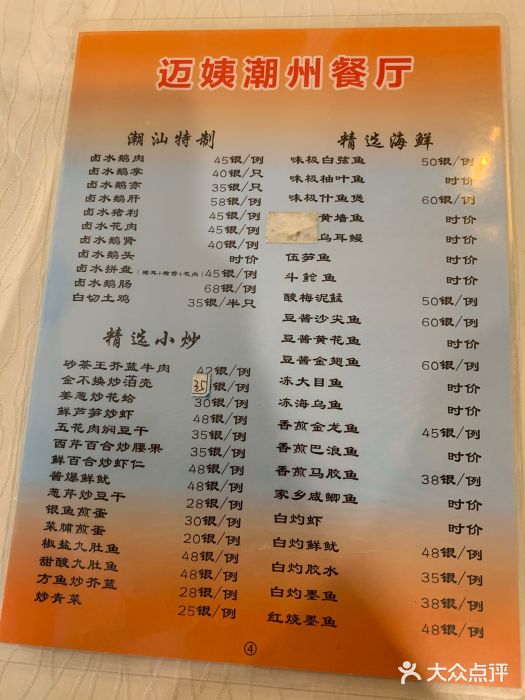 迈姨潮州餐厅
潮汕特制
卤水鹅肉 45银/例
卤水鹅掌 40银/只
卤水鹅亦 35银/只
卤水鹅肝 58银/例
卤水猪利 45银/例
卤水花肉 45银/例
卤水鹅肾 40银/例
卤水鹅头 时价
卤水拼盘(猪耳+猪舌+花肉) 45银/例
卤水鹅肠 68银/例
白切土鸡 35银/半只
精选小炒
砂茶王芥蓝牛肉 42银/例
金不换炒泊壳 35 银/例
姜葱炒花蛤 30银/例
鲜芦笋炒虾 48银/例
五花肉焖豆干 35银/例
西芹百合炒腰果 35银/例
鲜百合炒虾仁 48银/例
酱爆鲜鱿 48银/例
葱芹炒豆干 28银/例
银鱼煎蛋 30银/例
菜脯煎蛋 20银/例
椒盐九肚鱼 48银/例
甜酸九肚鱼 48银/例
方鱼炒芥蓝 28银/例
炒青菜 25银/例
精选海鲜
味极白弦鱼 50银/例
味极柚叶鱼 时价
味极什鱼煲 60银/例
黄墙鱼 时价
乌耳鳗 时价
伍笋鱼 时价
斗鲳鱼 时价
酸梅泥鯭 50银/例
豆酱沙尖鱼 60银/例
豆酱黄花鱼 时价
豆酱金翅鱼 60银/例
冻大目鱼 时价
冻海乌鱼 时价
香煎金龙鱼 45银/例
香煎巴浪鱼 时价
香煎马胶鱼 38银/例
家乡咸鲫鱼 时价
白灼虾 时价
白灼鲜鱿 48银/例
白灼胶水 35银/例
白灼墨鱼 38银/例
红烧墨鱼 48银/例
④
大众点评